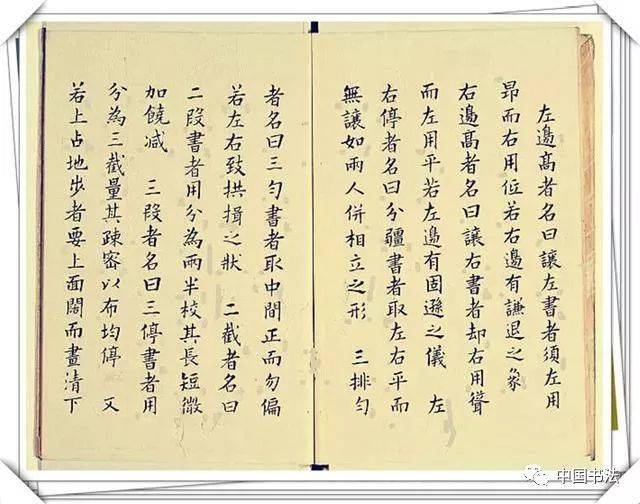 左邊高者名曰讓左書者須左用
昂而右用低若右邊有謙退之象
右邊高者名曰讓右書者却右用聳
而左用平若左邊有固遜之儀 左
右停者名曰分疆書者取左右平而
無讓如兩人併相立之形 三排勻
者名曰三勻書者取中間正而勿偏
若左右致拱揖之狀 二截者名曰
二段書者用分為兩半校其長短微
加饒减 三段者名曰三停書者用
分為三截量其疎密以布均停 又
若上占地步者要上面闊而畫清下
中国书法